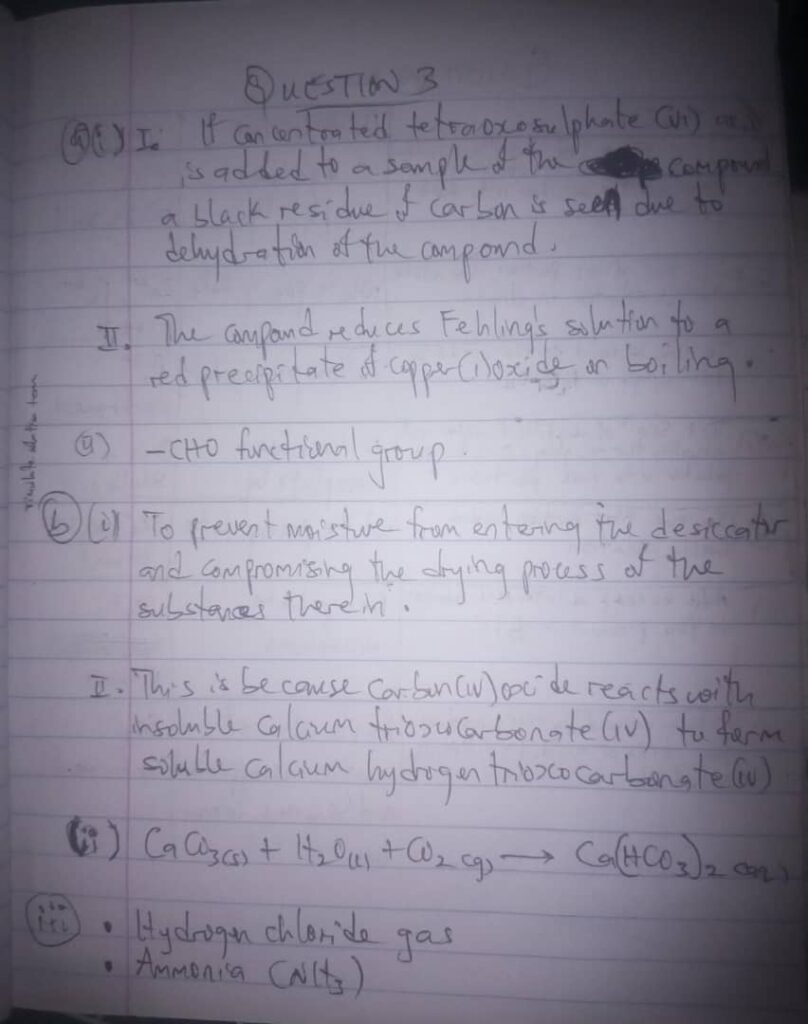 QUESTION 3
(a)(i) I. If concentrated tetraoxosulphate (VI)
is added to a sample of the compound
a black residue of carbon is seen due to
dehydration of the compound.
II. The compound reduces Fehling's solution to a
red precipitate of copper(i)oxide on boiling.
(ii) -CHO functional group.
(b) (i) To prevent moisture from entering the desiccator
and compromising the drying process of the
substances therein.
II. This is because Carbon(iv)oxide reacts with
insoluble Calcium trioxocarbonate (iv) to form
soluble Calcium hydrogen trioxocarbonate (iv)
(ii) CaCO3(s) + H2O(l) + CO2(g) → Ca(HCO3)2(aq)
(iii) • Hydrogen chloride gas
• Ammonia (NH3)